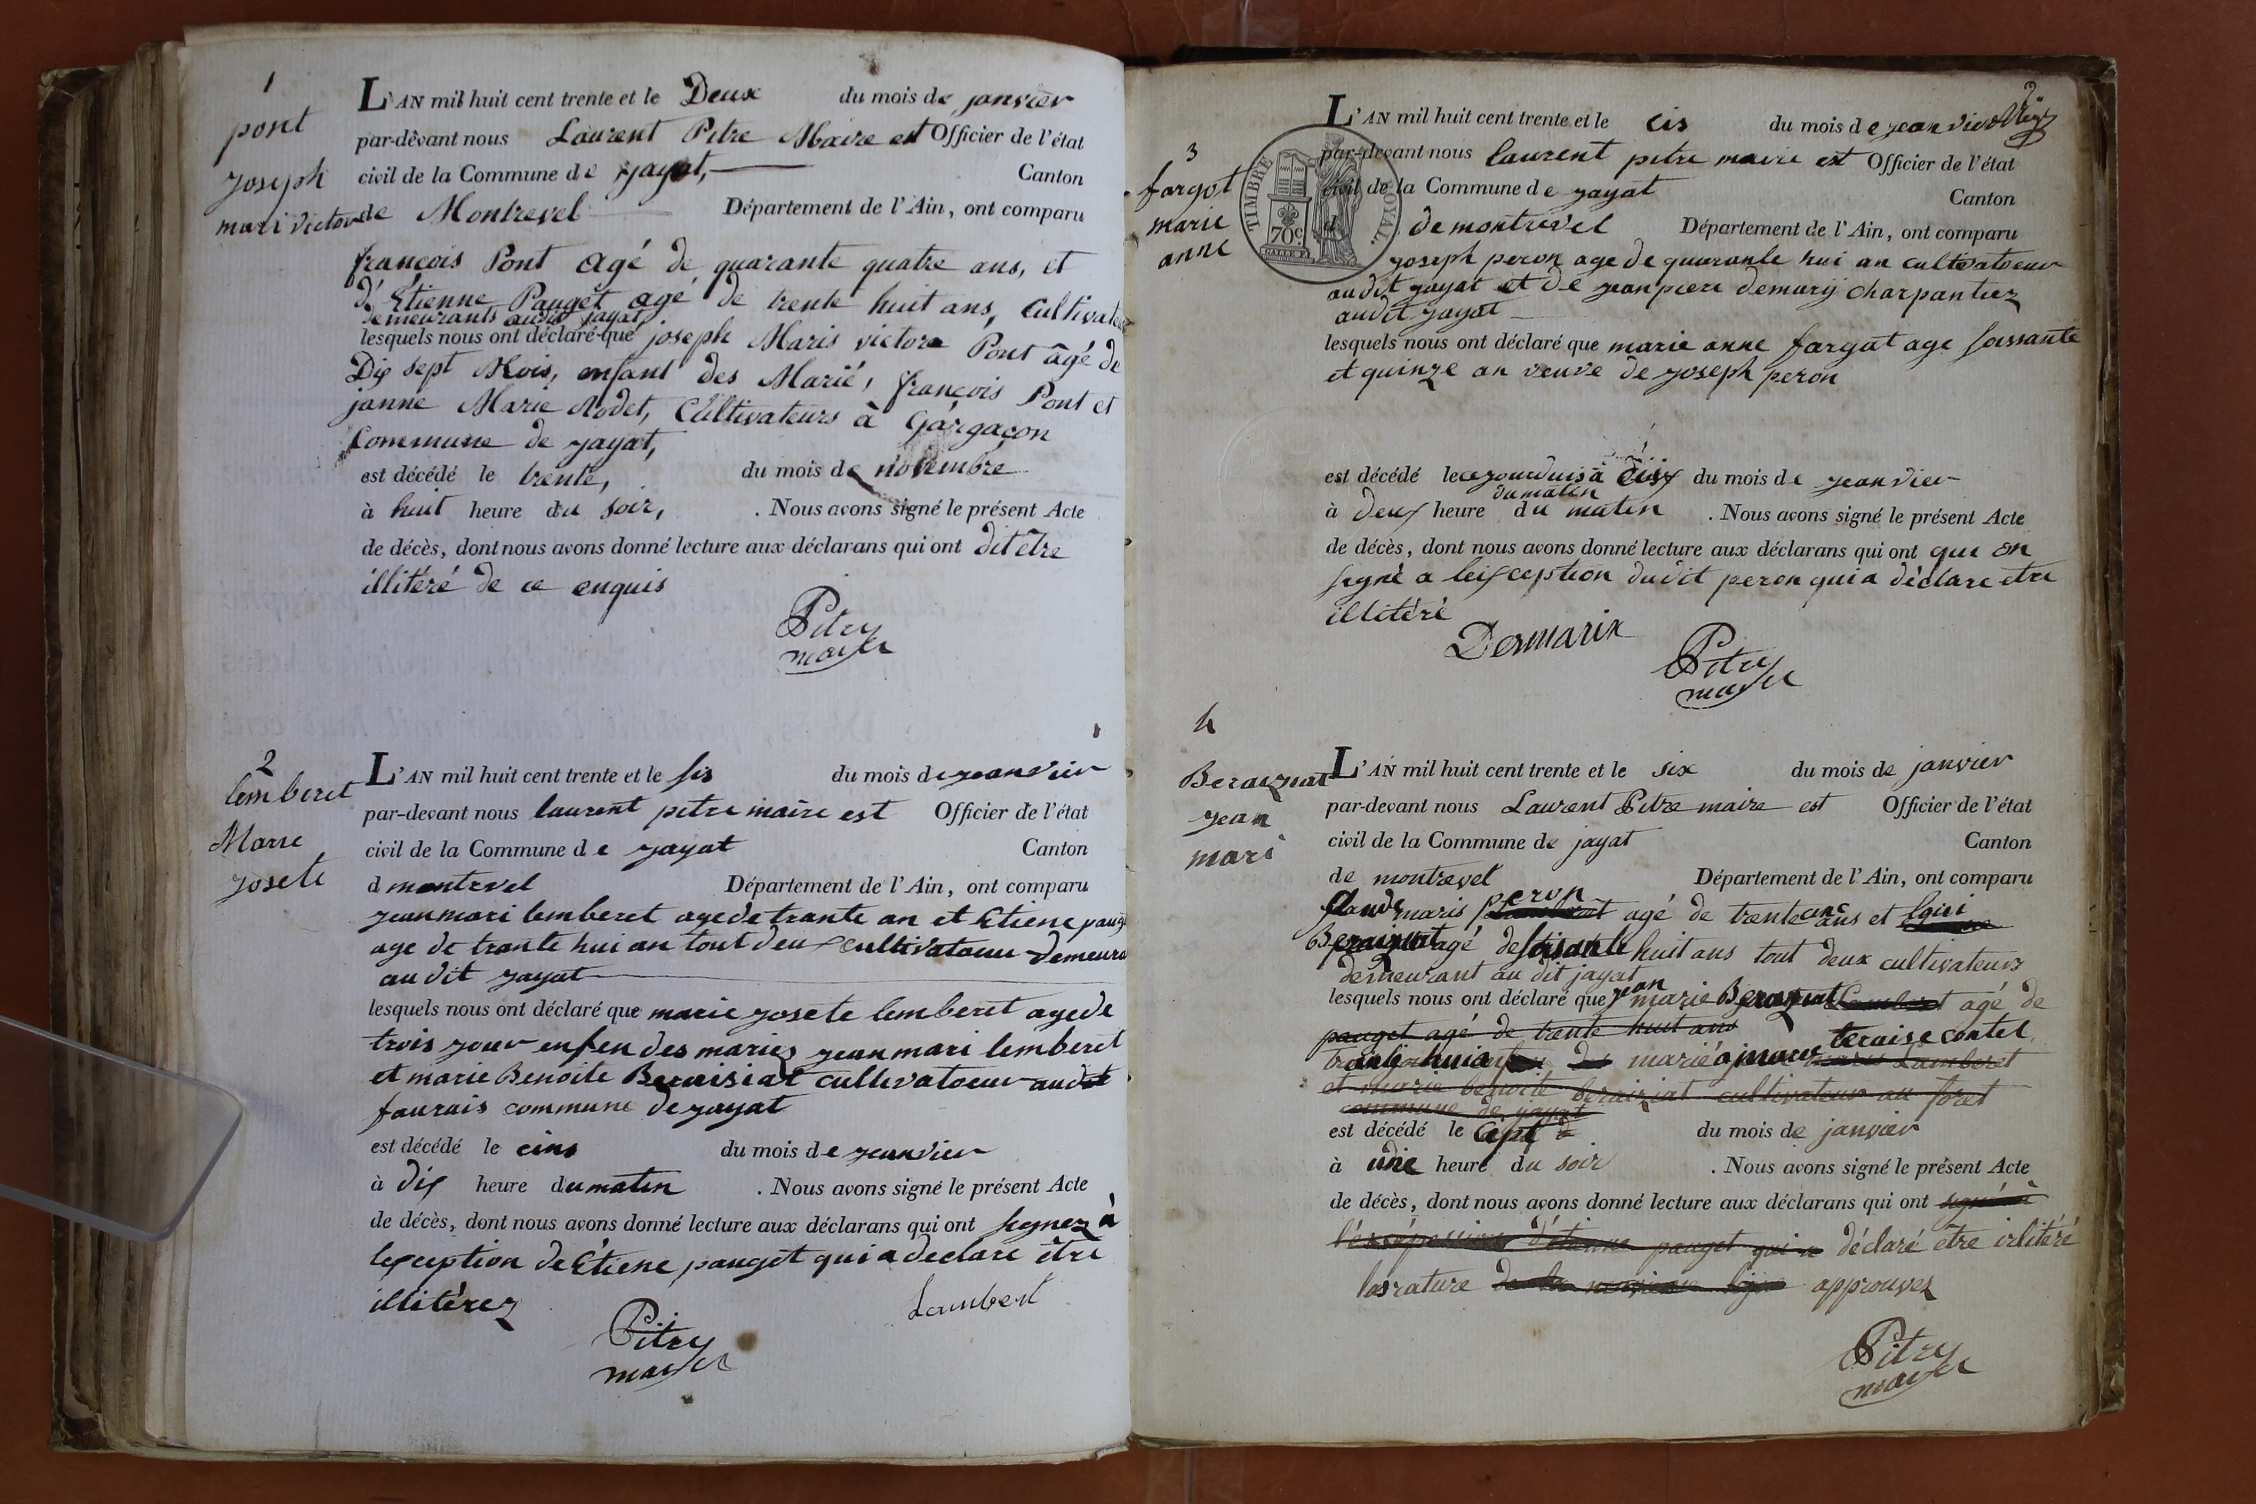 1
pont
joseph
mari victor
L'AN mil huit cent trente et le Deux du mois de janvier
par-devant nous Laurent Pitre Maire est Officier de l'état
civil de la Commune de jayat, Canton
de Montrevel Département de l'Ain, ont comparu
françois Pont agé de quarante quatre ans, et
d'Étienne Pauget agé de trente huit ans, Cultivate
demeurants audit jayat,
lesquels nous ont déclaré que joseph Maris victore Pont âgé de
Dix sept Mois, enfant des Marié, françois Pont et
janne Marie Rodet, Cultivateurs à Gárgaçon
Commune de jayat,
est décédé le trente, du mois de novembre
à huit heure du soir, . Nous avons signé le présent Acte
de décès, dont nous avons donné lecture aux déclarans qui ont dit être
illitéré de ce enquis
Pitre
mayre
2
lemberet
Marie
josete
L'AN mil huit cent trente et le sis du mois de jeanvier
par-devant nous laurent pitre maire est Officier de l'état
civil de la Commune de jayat Canton
d montrevel Département de l'Ain, ont comparu
jeanmari lemberet age de trante an et Etiene paug
age de trante hui an tout deux cultivatoeur demeura
au dit jayat
lesquels nous ont déclaré que marie josete lemberet age de
trois jour enfen des mariez jean mari lemberet
et marie Benoite Beraisiat cultivatoeur audit
faurais commune de jayat
est décédé le cins du mois de jeanvier
à dix heure du matin . Nous avons signé le présent Acte
de décès, dont nous avons donné lecture aux déclarans qui ont segnez à
lexception de Etiene pauget qui a declare être
illitérez
Lambert
Pitre
mayre
TIMBRE ROYAL.
70c
3
fargot
marie
anne
L'AN mil huit cent trente et le cis du mois de jeanvier
par-devant nous laurent pitre maire est Officier de l'état
civil de la Commune de jayat Canton
de montrevel Département de l'Ain, ont comparu
joseph peron age de quarante hui an cultivatoeur
au dit jayat et de jean piere demarij charpantiez
audit jayat
lesquels nous ont déclaré que marie anne fargat age soissante
et quinze an veuve de joseph peron
est décédé le ajourduis à cisx du mois de jeanvier
du maten
à deux heure du matin . Nous avons signé le présent Acte
de décès, dont nous avons donné lecture aux déclarans qui ont que on
segné a leisception dudit peron qui a déclare etre
illitéré
Demarix
Pitre
mayre
4
Beraiznat
jean
mari
L'AN mil huit cent trente et le six du mois de janvier
par-devant nous Laurent Pitre maire est Officier de l'état
civil de la Commune de jayat Canton
de montrevel Département de l'Ain, ont comparu
Claude maris peron agé de trente cinc ans et loui
Beraiznat agé de soisante huit ans tout deux cultivateurs
demeurant au dit jayat
lesquels nous ont déclaré que jean marie Beraznat Lamberet agé de
pauget agé de trente huit ans
trante huia marié a jeanne teraise contet marie Lamberet
et marie benoite beraiziat cultivateur au foret
commune de jayat
est décédé le cept du mois de janvier
à une heure du soir . Nous avons signé le présent Acte
de décès, dont nous avons donné lecture aux déclarans qui ont
d'étienne pauget qui a déclaré être illitéré
las rature approuvez
Pitre
mayre